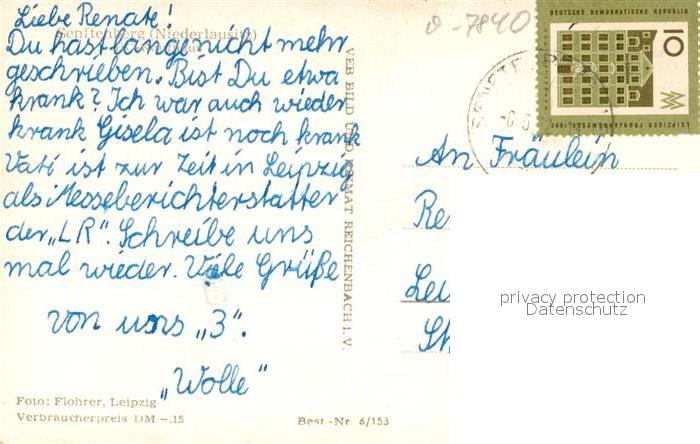 Liebe Renate!
Senftenberg (Niederlausitz)
Du hast lange nicht mehr
geschrieben. Bist Du etwa
krank? Ich war auch wieder
krank Gisela ist noch krank
Vati ist zur Zeit in Leipzig
als Messeberichterstatter
der „LR“. Schreibe uns
mal wieder. Viele Grüße
von uns „3“.
„Wolle“
Foto: Flohrer, Leipzig
Verbraucherpreis DM –.15
Best.-Nr. 6/153
VEB BILD UND HEIMAT REICHENBACH i. V.
7840
DEUTSCHE DEMOKRATISCHE REPUBLIK
10
LEIPZIGER FRÜHJAHRSMESSE
An Fräulein
Re
privacy protection
Datenschutz